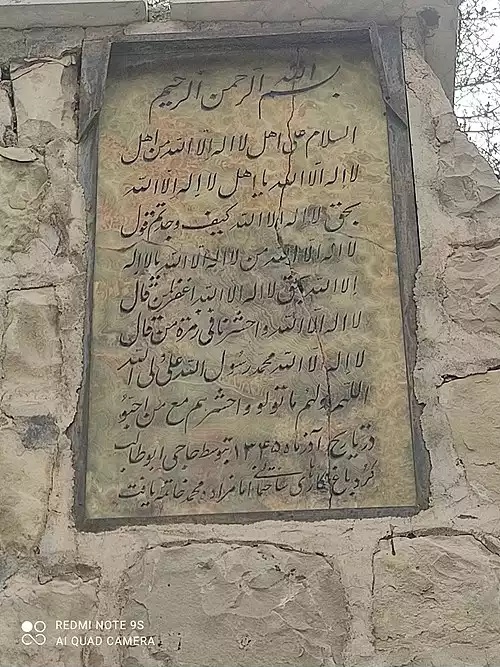 بسم الله الرحمن الرحیم
السلام علی اهل لا اله الا الله من اهل
لا اله الا الله یا اهل لا اله الا الله
بحق لا اله الا الله کیف وجدتم قول
لا اله الا الله من لا اله الا الله یا لا اله
الا الله بحق لا اله الا الله اغفر لمن قال
لا اله الا الله واحشرنا فی زمرة من قال
لا اله الا الله محمد رسول الله علی ولی الله
اللهم ولهم ما تولو واحشرهم مع من احبو
در تاریخ آذر ماه ۱۳۴۵ توسط حاجی ابوطالب
کرد باغ کارهای ساختمان امامزاده محمد خاتمه یافت
REDMI NOTE 9S
AI QUAD CAMERA